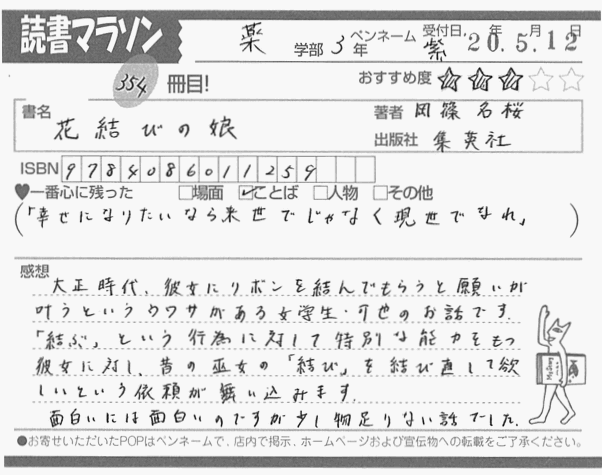 読書マラソン 薬 学部 3 年 ペンネーム 紫 受付日 20.5.12 年 月 日
354 冊目! おすすめ度 ★★★☆☆
書名 花結びの娘 著者 岡篠名桜
出版社 集英社
ISBN 9784086011259
♥一番心に残った □場面 ☑ことば □人物 □その他
(「幸せになりたいなら来世でじゃなく現世でなれ」)
感想
大正時代、彼女にリボンを結んでもらうと願いが
叶うというウワサがある女学生・可也のお話です。
「結ぶ」という行為に対して特別な能力をもつ
彼女に対し、昔の巫女の「結び」を結び直して欲
しいという依頼が舞い込みます。
面白いには面白いのですが少し物足りない話でした。
●お寄せいただいたPOPはペンネームで、店内で掲示、ホームページおよび宣伝物への転載をご了承ください。